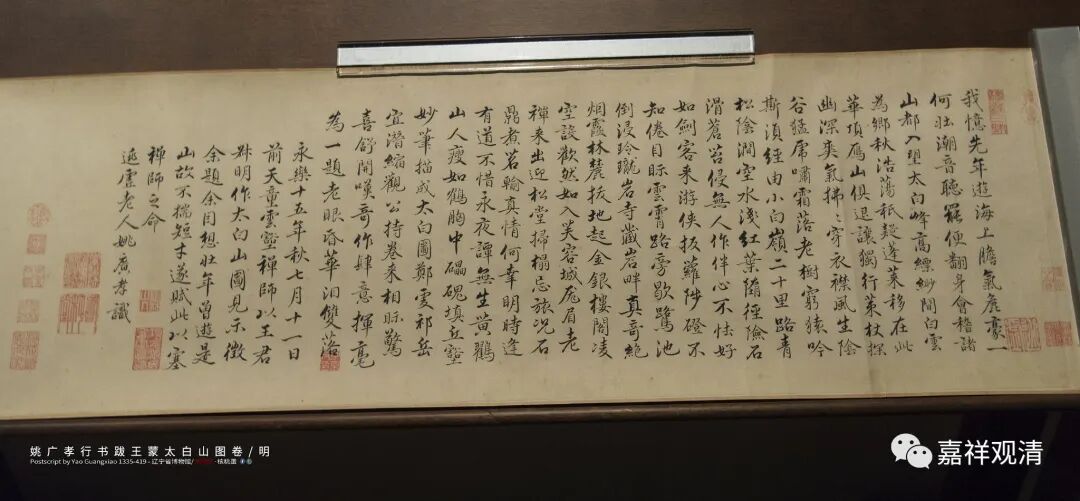 我憶先年遊海上膽氣麤豪一
何壯潮音聽罷便翻身會稽諸
山都入望太白峰高縹緲間白雲
為鄉秋浩蕩秖疑蓬萊移在此
華頂鴈山俱退讓獨行策杖探
幽深爽氣拂拂穿衣襟風生陰
谷猛虎嘯霜落老樹窮猿吟
斯須經由小白嶺二十里路青
松陰澗空水淺紅葉墮徑險石
滑蒼苔侵無人作伴心不怯好
如劍客來游俠拔蘿陟磴不
知倦目眎雲霄路旁歇鷺池
倒浸玲瓏岩寺藏岩畔真奇絕
烟霾林麓拔地起金銀樓閣凌
空設歡然如入芙容城厖眉老
禪来出迎松堂掃榻忘旅況石
鼎煮茗輸真情何幸明時逢
有道不惜永夜譚無生黃鶴
山人瘦如鶴胸中礌磈填丘壑
妙筆描成太白圖鄭雲祁岳
宜潛縮觀公持卷来相眎驚
喜舒開嘆奇作肆意揮毫
為一題老眼昏華泪雙落
永樂十五年秋七月十一日
前天童雲壑禪師以王君
叔明作太白山圖見示徵
余題余因想壯年曾遊是
山故不揣短才遂賦此以塞
禪師之命
逃虛老人姚廣孝識
姚广孝行书跋王蒙太白山图卷/明
Postscript by Yao Guangxiao 1335-419 - 辽宁省博物館/ -核桃蛋
嘉祥观清